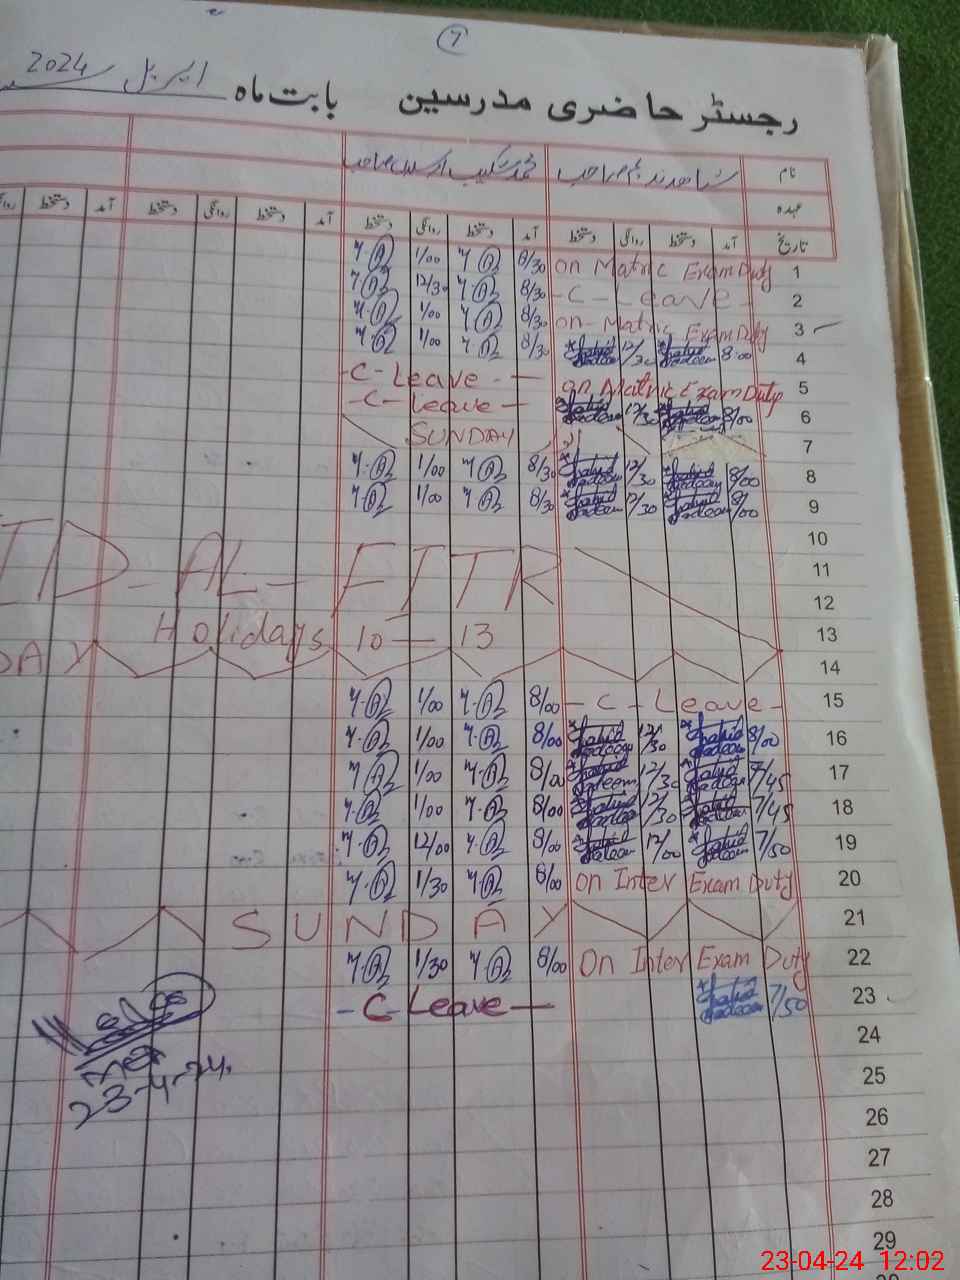 7
رجسٹر حاضری مدرسین بابت ماہ اپریل 2024
نام شاہد ندیم صاحب
عہدہ
تاریخ آمد دستخط روانگی دستخط آمد دستخط روانگی دستخط آمد دستخط روانگی دستخط آمد دستخط
1 on Matric Exam Duty 8/30 1/00
2 - C - Leave - 8/30 12/30
3 on Matric Exam Duty 8/30 1/00
4 8:00 Shahid Nadeem 12/30 Shahid Nadeem 8/30 1/00
5 on Matric Exam Duty - C - Leave -
6 8/00 Shahid Nadeem 12/30 Shahid Nadeem - C - Leave -
7 SUNDAY
8 8/00 Shahid Nadeem 12/30 Shahid Nadeem 8/30 1/00
9 8/00 Shahid Nadeem 12/30 Shahid Nadeem 8/30 1/00
10
11 EID-AL-FITR
12
13 Holidays 10 — 13
14 DAY
15 - C - Leave - 8/00 1/00
16 8/00 Shahid Nadeem 12/30 Shahid Nadeem 8/00 1/00
17 7/45 Shahid Nadeem 12/30 Shahid Nadeem 8/00 1/00
18 7/45 Shahid Nadeem 12/30 Shahid Nadeem 8/00 1/00
19 7/50 Shahid Nadeem 12/00 Shahid Nadeem 8/00 12/00
20 on Inter Exam Duty 8/00 1/30
21 SUNDAY
22 On Inter Exam Duty 8/00 1/30
23 7/50 Shahid Nadeem - C - Leave -
24
25
26
27
28
29
23-4-24
23-04-24 12:02